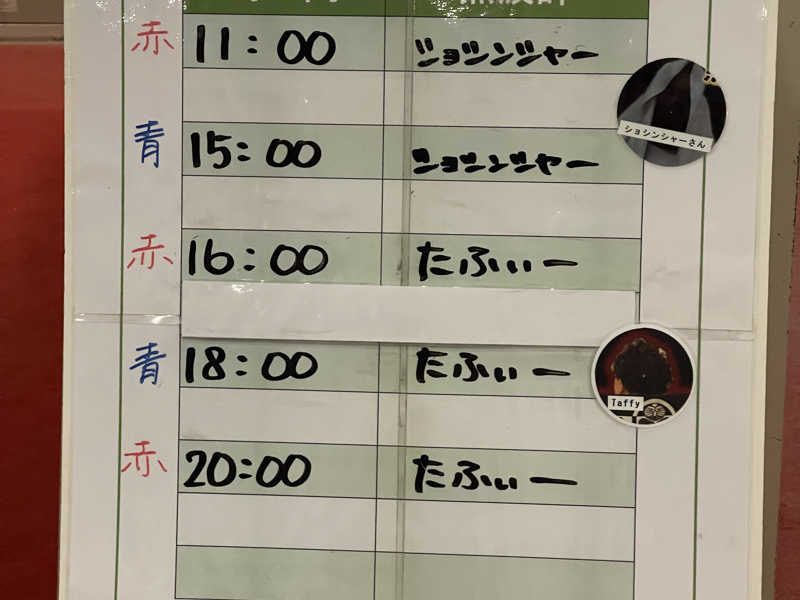 赤 11:00 ショシンシャー
ショシンシャーさん
青 15:00 ショシンシャー
赤 16:00 たふぃー
青 18:00 たふぃー
Taffy
赤 20:00 たふぃー